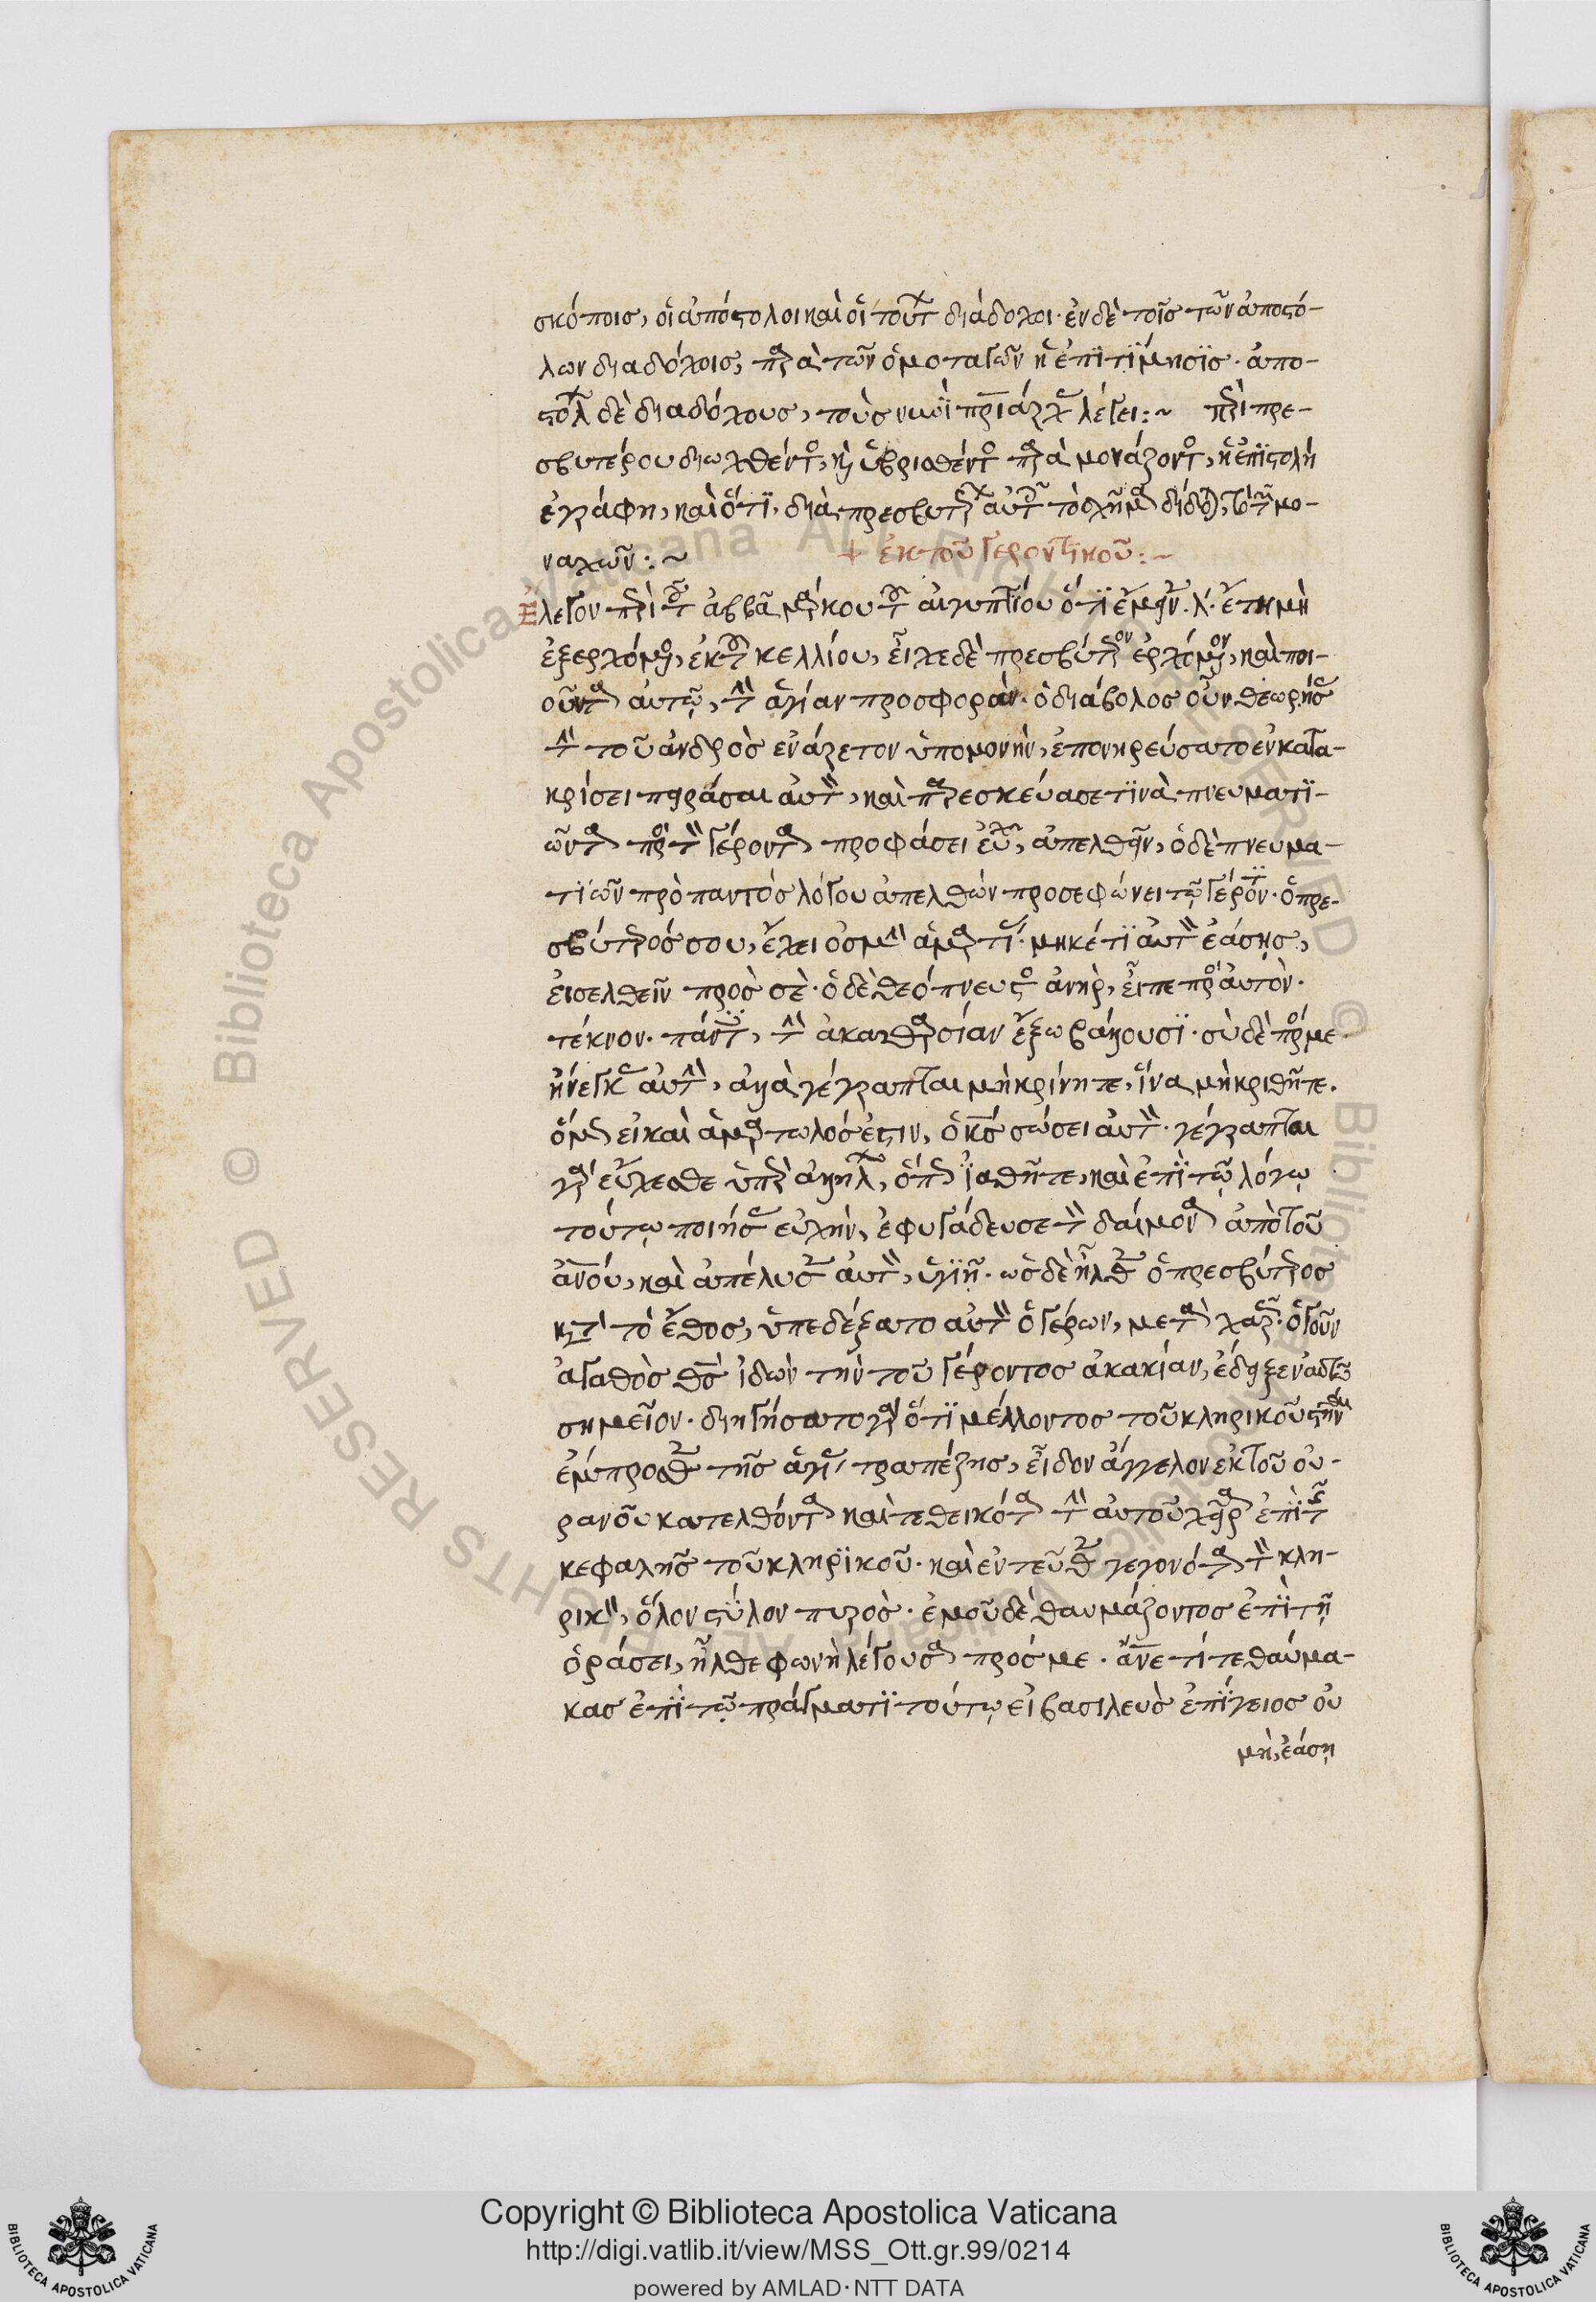 σκόποις, οἱ ἀπόστολοι καὶ οἱ τούτων διάδοχοι· ἐν δὲ τοῖς τῶν ἀποστό-
λων διαδόχοις, παρὰ τῶν ὁμοταγῶν ἡ ἐπϊτϊμησϊς· ἀπο-
στόλων δὲ διαδόχους, τοὺς λέγει:~ περὶ πρε-
σβυτέρου διωχθέντος, καὶ ὑβρισθέντος παρὰ μονάζοντος, ἡ ἐπϊστολὴ
ἐγράφη, καὶ ὅτϊ, διὰ πρεσβυτέρων αὐτῶν τὸ σχῆμα δίδοται, τῶν μο-
ναχῶν:~ + ἐκ τοῦ Γεροντϊκοῦ:~
Ἔλεγον περὶ τοῦ ἀββᾶ μάρκου τοῦ αἰγυπτίου ὅτϊ ἔμεινεν λ' ἔτη μὴ
ἐξερχόμενος, ἐκ τοῦ κελλίου, εἶχε δὲ πρεσβύτερον ἐρχόμενον, καὶ ποι-
οῦντα αὐτῷ, τὴν ἁγίαν προσφοράν· ὁ διάβολος οὖν θεωρήσας
τὴν τοῦ ἀνδρὸς ἐνάρετον ὑπομονὴν, ἐπονηρεύσατο ἐν κατα-
κρίσει πειράσαι αὐτὸν, καὶ παρεσκεύασε τϊνὰ πνευματϊ-
ῶντα πρὸς τὸν Γέροντα προφάσει εὐχῆς, ἀπελθεῖν, ὁ δὲ πνευμα-
τϊῶν πρὸ παντὸς λόγου ἀπελθὼν προσεφώνει τῷ Γέροντι· ὁ πρε-
σβύτερός σου, ἔχει ὀσμὴν ἁμαρτίας· μηκέτϊ αὐτὸν ἐάσῃς,
εἰσελθεῖν πρὸς σὲ· ὁ δὲ θεόπνευστος ἀνὴρ, εἶπε πρὸς αὐτὸν·
τέκνον· πάντες, τὴν ἀκαθαρσίαν ἔξω βάλλουσϊ· σὺ δὲ πρός με
ἤνεγκας αὐτὴν, ἀλλὰ γέγραπται μὴ κρίνητε, ἵνα μὴ κριθῆτε.
ὅμως εἰ καὶ ἁμαρτωλός ἐστιν, ὁ κς σώσει αὐτὸν· γέγραπται
γὰρ εὔχεσθε ὑπὲρ ἀλλήλων, ὅπως ἰαθῆτε, καὶ ἐπϊ τῷ λόγῳ
τούτῳ ποιήσας εὐχὴν, ἐφυγάδευσε τὸν δαίμονα ἀπὸ τοῦ
ανου, καὶ ἀπέλυσεν αὐτὸν, ὑγϊῆ· ὡς δὲ ἦλθεν ὁ πρεσβύτερος
κατὰ τὸ ἔθος, ὑπεδέξατο αὐτὸν ὁ Γέρων, μετὰ χαρᾶς· ὁ γοῦν
ἀγαθὸς θς ἰδὼν τὴν τοῦ Γέροντος ἀκακίαν, ἔδειξεν αὐτῷ
σημεῖον· διηγήσατο γὰρ ὅτϊ μέλλοντος τοῦ κληρικοῦ στῆναι
ἔμπροσθεν τῆς ἁγίας τραπέζης, εἶδον ἄγγελον ἐκ τοῦ οὐ-
ρανοῦ κατελθόντα καὶ τεθεικότα τὴν αὐτοῦ χεῖρα ἐπϊ τῆς
κεφαλῆς τοῦ κληρϊκοῦ· καὶ ἐντεῦθεν γεγονότα τὸν κλη-
ρικὸν, ὅλον στῦλον πυρὸς· ἐμοῦ δὲ θαυμάζοντος ἐπϊ τῇ
ὁράσει, ἦλθε φωνὴ λέγουσα πρός με· ἄνε τί τεθαύμα-
κας ἐπϊ τῷ πράγματϊ τούτῳ εἰ βασιλεὺς ἐπίγειος οὐ
μὴ, ἐάσῃ
Copyright © Biblioteca Apostolica Vaticana
http://digi.vatlib.it/view/MSS_Ott.gr.99/0214
powered by AMLAD·NTT DATA